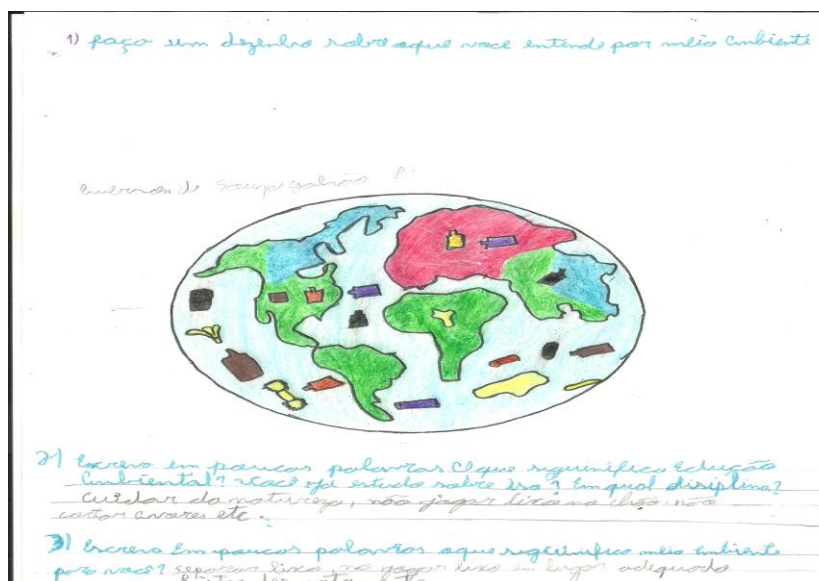 1) faço um dezenho sobre aque você entende por meio ambiente
2) Escreva em poucas palavras O que siguinifica Edução
Ambiental? Você ja estudo sobre iso? Em qual disiplina?
cuidar da natureza, não jogar lixo no chão, não
cortar arvores etc.
3) Escreva Em poucas palavras aque siguinifica meio ambiente
para você? separar lixo, no jogar lixo em lugar adequado